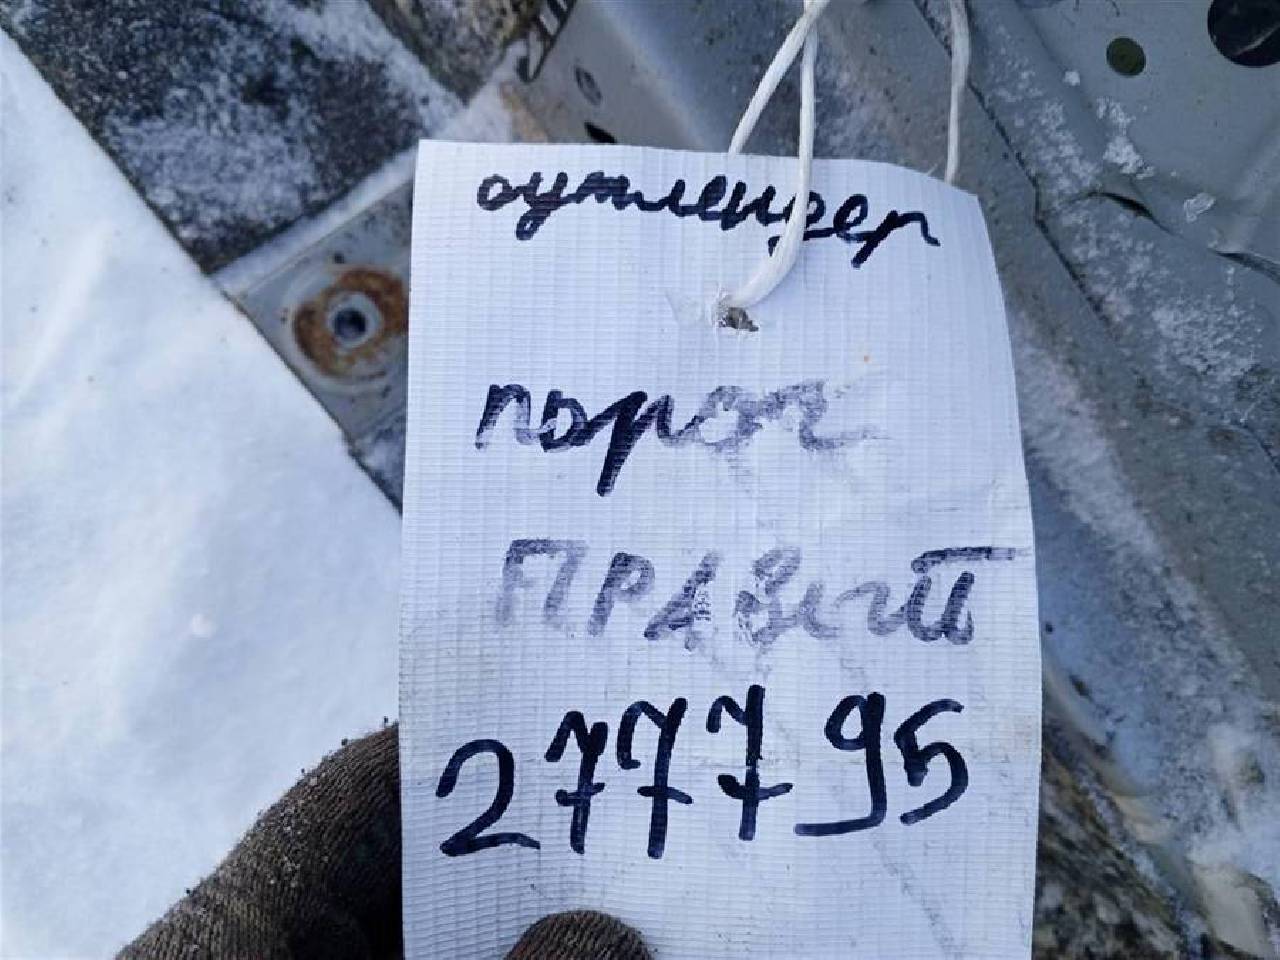 аутлендер
порог
ПРАВЫЙ
277795